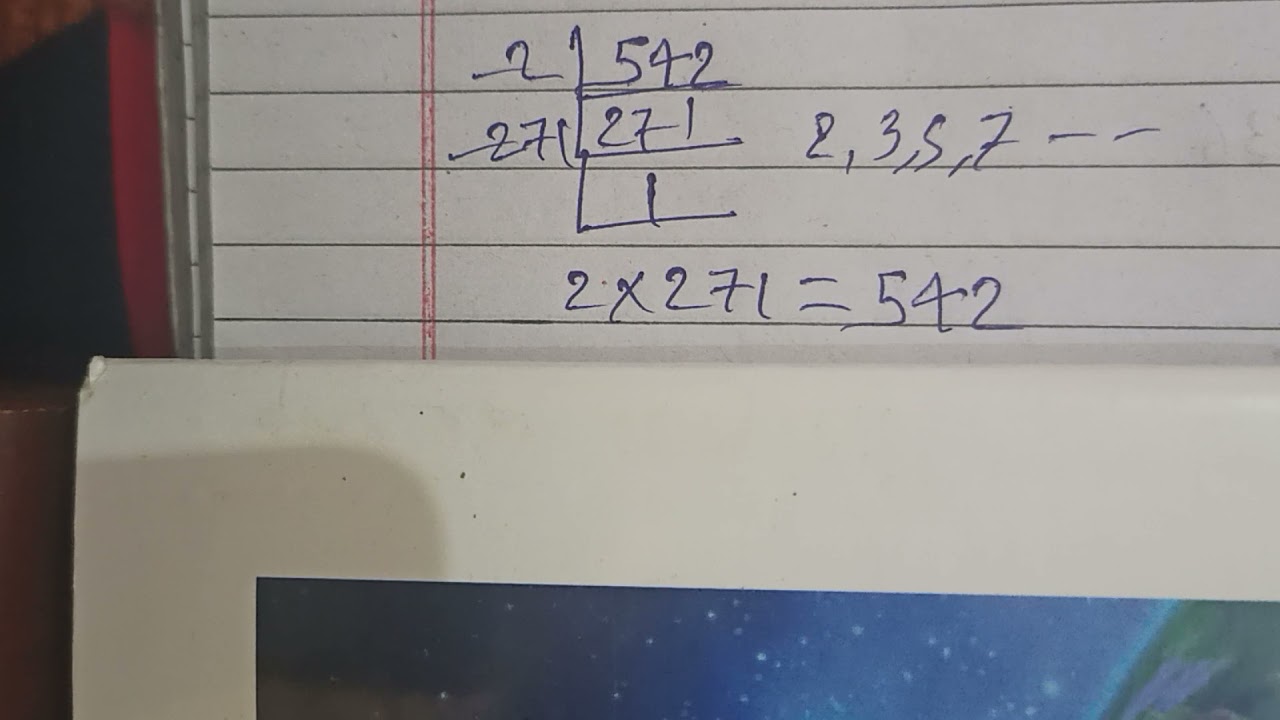 2 | 542
271 | 271 2, 3, 5, 7 - -
1
2 × 271 = 542